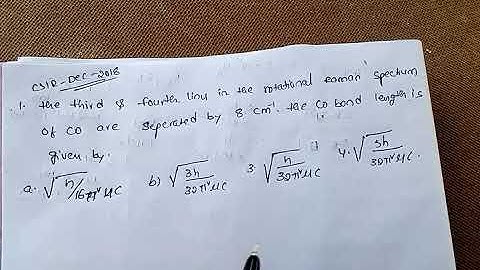 CSIR-Dec-2018
1. the third & fourth lines in the rotational raman spectrum
of CO are seperated by 8 cm⁻¹. the CO bond length is
given by.
a. √h/16π²μC b) √3h/32π²μC 3. √h/32π²μC 4. √5h/32π²μC.